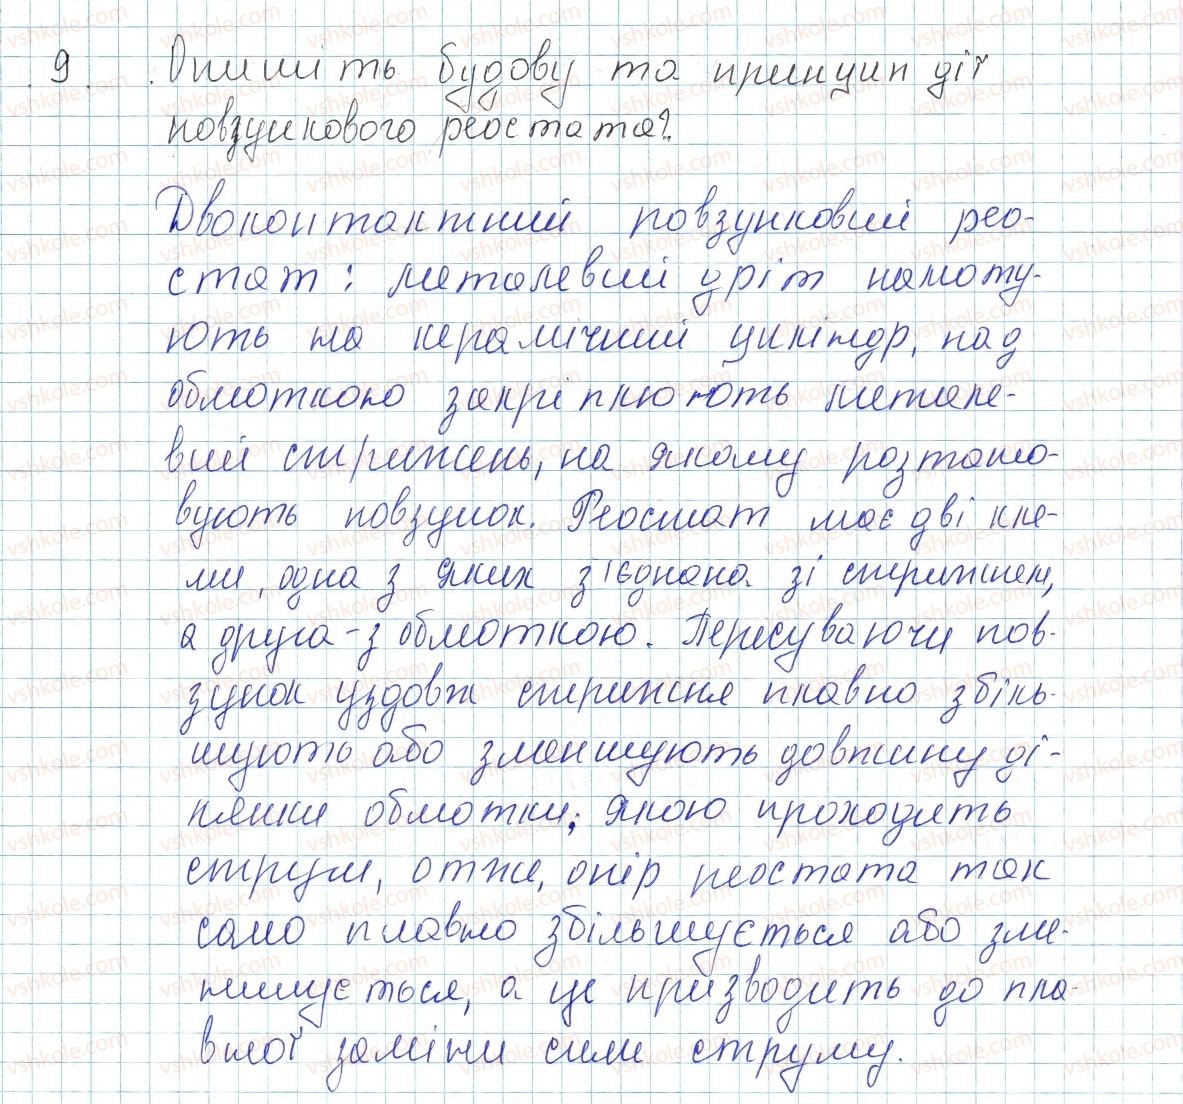 9. Опишіть будову та принцип дії
повзункового реостата?
Двоконтактний повзунковий рео-
стат: металевий дріт намоту-
ють на керамічний циліндр, над
обмоткою закріплюють метале-
вий стрижень, на якому розташо-
вують повзунок. Реостат має дві кле-
ми, одна з яких з'єднана зі стрижнем,
а друга - з обмоткою. Пересуваючи пов-
зунок уздовж стрижня плавно збіль-
шують або зменшують довжину ді-
лянки обмотки, якою проходить
струм, отже, опір реостата так
само плавно збільшується або зме-
ншується, а це призводить до пла-
вної заміни сили струму.